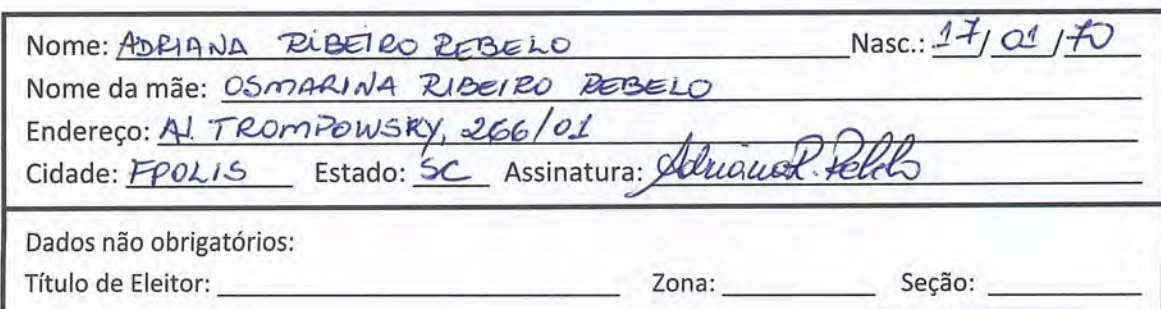 Nome: ADRIANA RIBEIRO REBELO Nasc.: 17/01/70
Nome da mãe: OSMARINA RIBEIRO REBELO
Endereço: Al. TROMPOWSKY, 266/01
Cidade: FPOLIS Estado: SC Assinatura: Adriana R. Rebelo
Dados não obrigatórios:
Título de Eleitor: Zona: Seção: